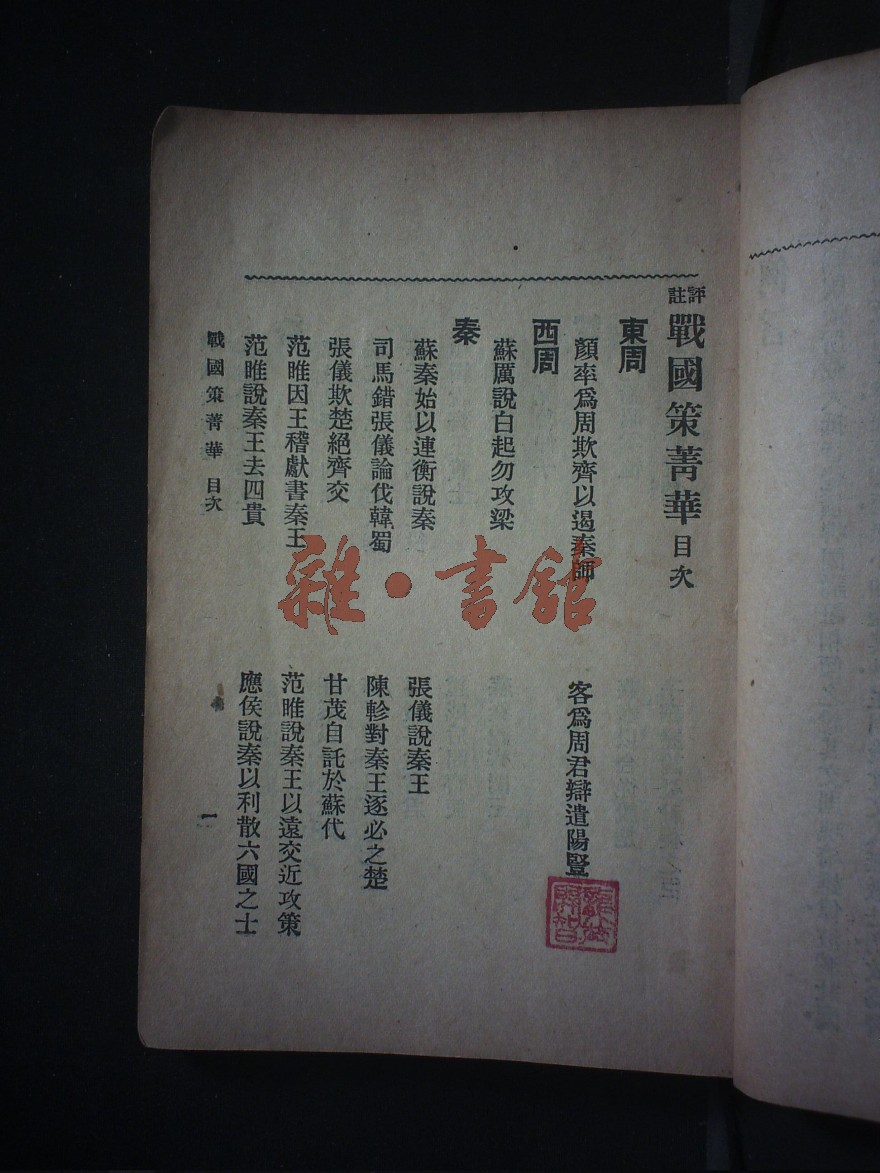 評註戰國策菁華 目次
東周
顏率爲周欺齊以遏秦師
客爲周君辯遣陽豎
西周
蘇厲說白起勿攻梁
秦
蘇秦始以連衡說秦
張儀說秦王
司馬錯張儀論伐韓蜀
陳軫對秦王逐必之楚
張儀欺楚絕齊交
甘茂自託於蘇代
范睢因王稽獻書秦王
范睢說秦王以遠交近攻策
范睢說秦王去四貴
應侯說秦以利散六國之士
戰國策菁華 目次
一
雜·書館